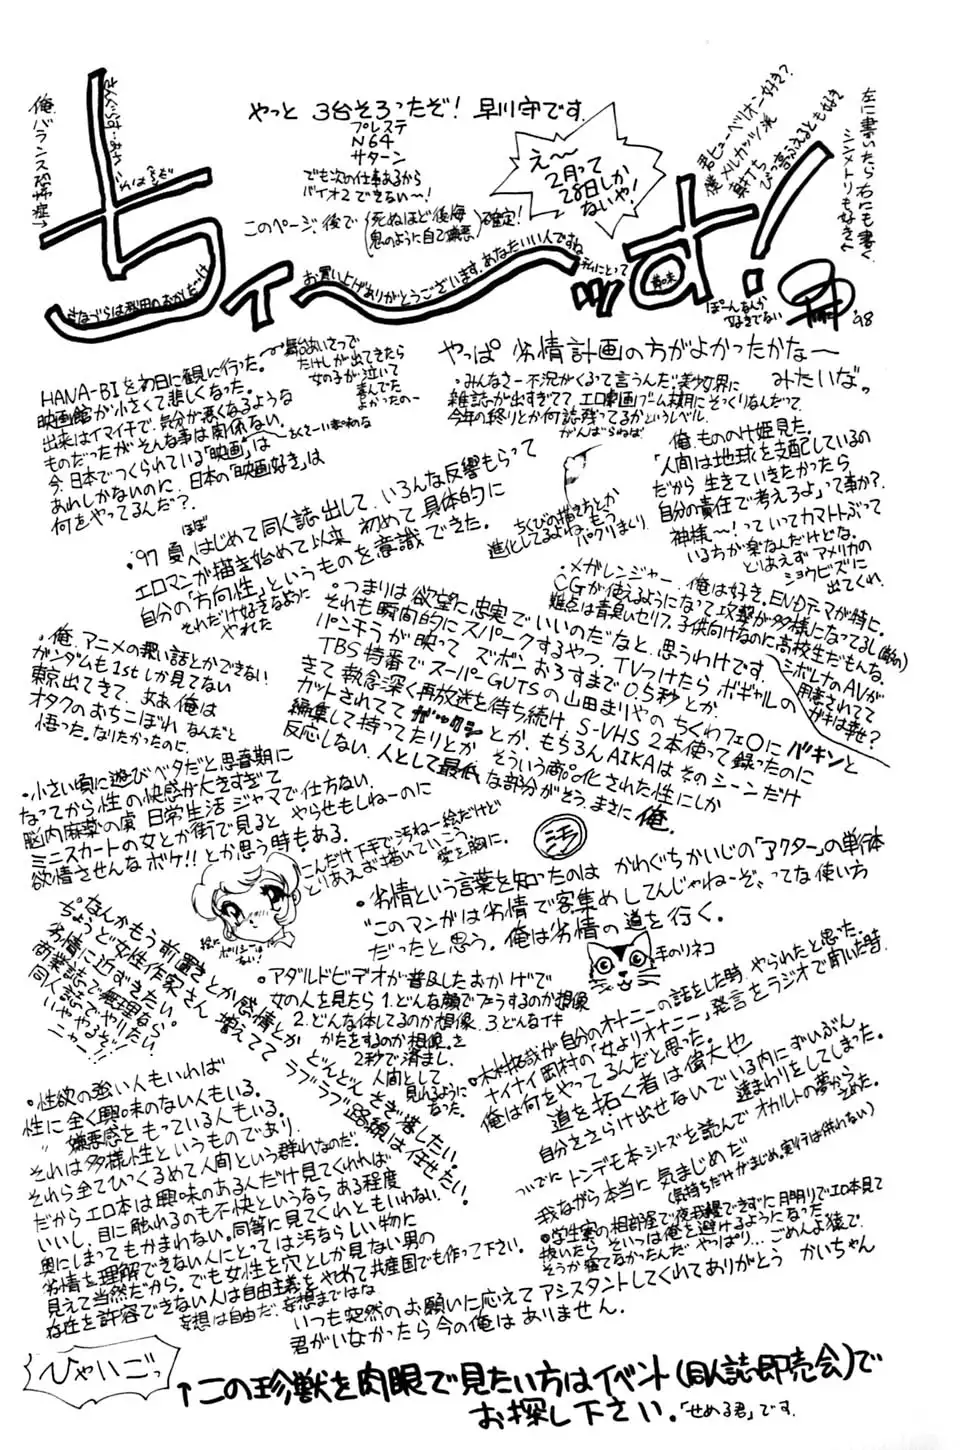 やっと 3台そろったぞ！早川守です。
プレステ
N64
サターン
でも次の仕事あるから
バイオ2できない〜！
このページ、後で(死ぬほど後悔 鬼のように自己嫌悪)確定！
え〜
2月って
28日しか
ないや！
左に書いたら右にも書く
シンメトリも好き
君ヒューペリオン好き？
僕メルカッツ派
ちィ〜ッす！
お買い上げありがとうございます。あなたいい人ですね
私にとって
ぽーんなんか
好きでない
'98
HANA-BIを初日に観に行った。
舞台あいさつで
たけしが出てきたら
女の子が泣いて
喜んでた
よかったの〜
映画館が小さくて悲しくなった。
出来はイマイチで、気分が悪くなるような
ものだったがそんな事は関係ない。
今、日本でつくられている「映画」は
あれしかないのに、日本の「映画好き」は
何をやってるんだ？
やっぱ 劣情計画の方がよかったかな〜
みたいなっ
・みんなさー不況がくるって言うんだ。美少女界に
雑誌が出すぎてて、エロ劇画ブーム末期にそっくりなんだって
今年の終りとか何誌残ってるかというレベル。
がんばらねば
俺もののけ姫見た。
「人間は地球を支配しているの
だから 生きていきたかったら
自分の責任で考えろよ」って事か？
神様〜！っていってカマトトぶって
いる方が楽なんだけどな。
とりあえず アメリカの
ショウビズに
出てくれ
ちくびの描き方とか
進化してるよね。もう
パクりまくり
'97 夏、ほぼはじめて同人誌出して、いろんな反響もらって
エロマンガ描き始めて以来 初めて具体的に
自分の「方向性」というものを意識できた。
それだけ好きなように
やれた
・メガレンジャー、俺は好き、ENDテーマが特に。
CGが使えるようになって攻撃が多様になってるし
難点は青臭いセリフ。子供向けなのに高校生だもんな。
シボレナのAVが
用意されてて
かれは幸せ？
・つまりは欲望に忠実でいいのだなと、思うわけです。
それも瞬間的にスパークするやつ。TVつけたら ボギャルの
パンチラが映って ズボンおろすまで0.5秒とか。
TBS特番でスーパーGUTSの山田まりやの ちくわフェ〇にバキンと
きて 執念深く再放送を待ち続け、S-VHS 2本使って録ったのに
カットされてて ガックシとか、もちろんAIKAはそのシーンだけ
編集して持ってたりとか そういう商品化された性にしか
反応しない、人として最低な部分がそう、まさに俺。
・俺、アニメの濃い話とかできない
ガンダムも1stしか見てない
東京出てきて、ああ俺は
オタクのおちこぼれなんだと
悟った。なりたかったのに。
・小さい頃に遊びベタだと思春期に
なってから性の快感が大きすぎて
脳内麻薬の虜 日常生活 ジャマで仕方ない。
ミニスカートの女とか街で見ると やらせもしねーのに
欲情させんなボケ!!とか思う時もある。
こんだけ下手で汚ねー絵だけど
とりあえず描いていこう
愛を胸に。
・劣情という言葉を知ったのは かわぐちかいじの「アクター」の単行本
"このマンガは劣情で客集めしてんじゃねーぞ"ってな使い方
だったと思う。俺は劣情の道を行く。
手のりネコ
・なんかもう前置きとか感情とか
ちょうど女性作家さん増えてて
どんどんとさぎ落したい。
ラブラブ路線は任せたい。
劣情に近ずきたい。
商業誌で無理なら
同人誌でやりたい
いややるぞ！
ニャー!!
・アダルトビデオが普及したおかげで
女の人を見たら 1.どんな顔でフェラするのか想像
2.どんな体してるのか想像 3.どんなイキ
かたをするのか想像、を
2秒で済まし、
人間として
見れるように
なった。
・木村拓哉が自分のオナニーの話をした時、やられたと思った。
ナイナイ岡村の「女よりオナニー」発言をラジオで聞いた時
俺は何をやってるんだと思った。
道を拓く者は偉大也
自分をさらけ出せないでいる内にずいぶん
遠まわりをしてしまった。
ついでにトンデモ本シリーズを読んで オカルトの夢から
さめた。
我ながら本当に気まじめだ
(気持ちだけがまじめ。実行は伴わない)
・性欲の強い人もいれば
性に全く興味のない人もいる。
〃 嫌悪感をもっている人もいる。
それは多様性というものであり、
それら全てひっくるめて人間という群れなのだ。
だからエロ本は興味のある人だけ見てくれれば
いいし、目に触れるのも不快というなら ある程度
奥にしまってもかまわない。同等に見てくれともいわない。
劣情を理解できない人にとっては汚ならしい物に
見えて当然だから。でも女性を穴としか見ない男の
存在を許容できない人は自由主義をやめて共産国でも作って下さい。
妄想は自由だ、妄想まではな
・学生寮の相部屋で夜我慢できずに月明りでエロ本見て
抜いたら そいつは俺を避けるようになった
そうか寝てなかったんだ やっぱり…ごめんよ後で。
いつも突然のお願いに応えて アシスタントしてくれてありがとう かいちゃん
君がいなかったら今の俺はありません。
ひゃいごっ
↑この珍獣を肉眼で見たい方はイベント(同人誌即売会)で
お探し下さい。「せめる君」です.